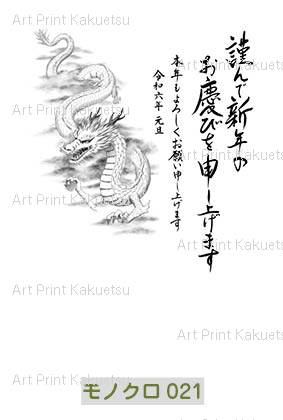 謹んで新年の
お慶びを申し上げます
本年もよろしくお願い申し上げます
令和六年 元旦
Art Print Kakuetsu
Art Print Kakuetsu
Art Print Kakuetsu
Art Print Kakuetsu
Art Print Kakuetsu
Art Print Kakuetsu
Art Print Kakuetsu
Art Print Kakuetsu
Art Print Kakuetsu
Art Print Kakuetsu
モノクロ 021